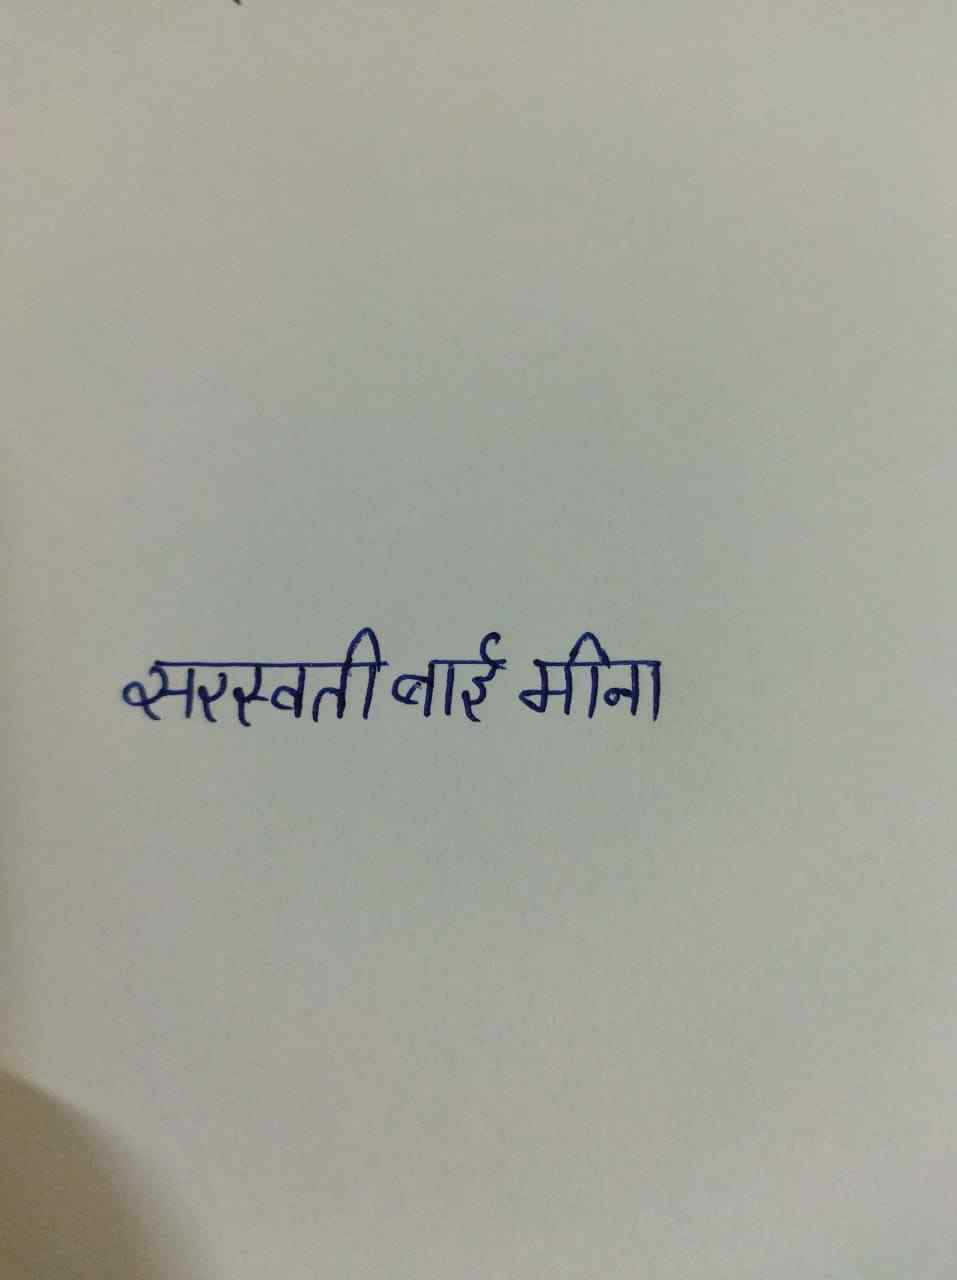 सरस्वती बाई मीना